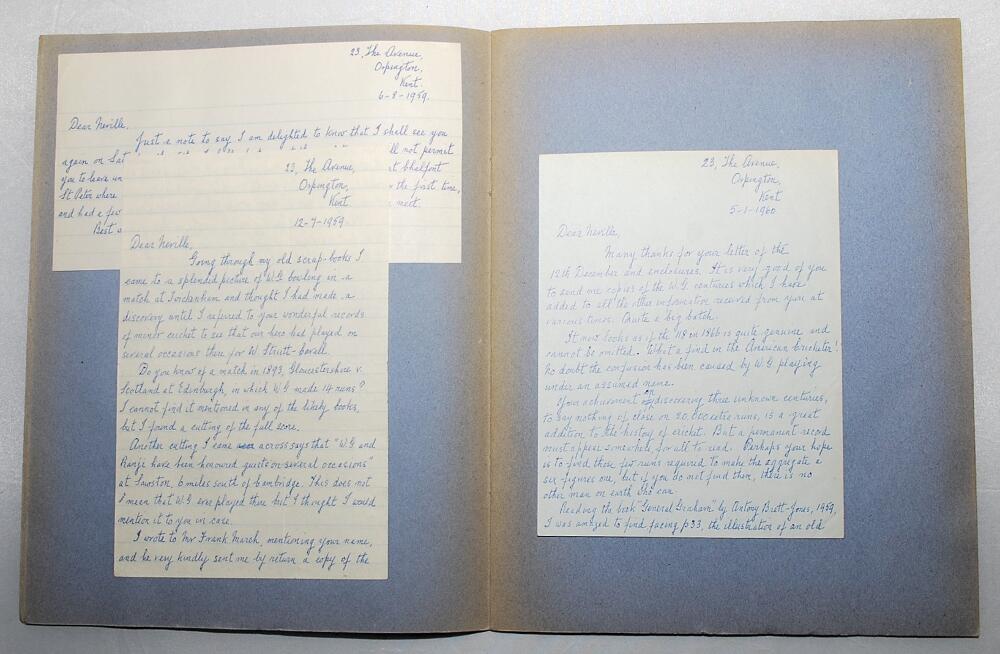 23, The Avenue,
Orpington,
Kent.
6-8-1959.
Dear Neville,
Just a note to say I am delighted to know that I shall see you
again on Sat
ll not permit
you to leave un
t Chalfont
St Peter where
the first time,
and had a few
meet.
Best
23, The Avenue,
Orpington,
Kent
12-7-1959
Dear Neville,
Going through my old scrap-books I
came to a splendid picture of W.G. bowling in a
match at Twickenham and thought I had made a
discovery until I referred to your wonderful records
of minor cricket to see that our hero had played on
several occasions there for W. Strutt-Cavell.
Do you know of a match in 1893, Gloucestershire v.
Scotland at Edinburgh, in which W.G. made 14 runs?
I cannot find it mentioned in any of the likely books,
but I found a cutting of the full score.
Another cutting I came across says that "W.G and
Ranji have been honoured guests on several occasions"
at Sawston, 6 miles south of Cambridge. This does not
mean that W.G. ever played there but I thought I would
mention it to you in case.
I wrote to Mr Frank March, mentioning your name,
and he very kindly sent me by return a copy of the
23, The Avenue,
Orpington,
Kent
5-1-1960
Dear Neville,
Many thanks for your letter of the
12th December and enclosures. It is very good of you
to send me copies of the W.G. centuries which I have
added to all the other information received from you at
various times. Quite a big batch.
It now looks as if the 118 in 1866 is quite genuine and
cannot be omitted. What a find in the American Cricketer!
No doubt the confusion has been caused by W.G playing
under an assumed name.
Your achievement in discovering three unknown centuries,
to say nothing of close on 20,000 extra runs, is a great
addition to the history of cricket. But a permanent record
must appear somewhere for all to read. Perhaps your hope
is to find those few runs required to make the aggregate a
six figures one, but if you do not find them, there is no
other man on earth who can.
Reading the book "General Graham" by Antony Brett-Jones, 1959,
I was amazed to find facing p33, the illustration of an old